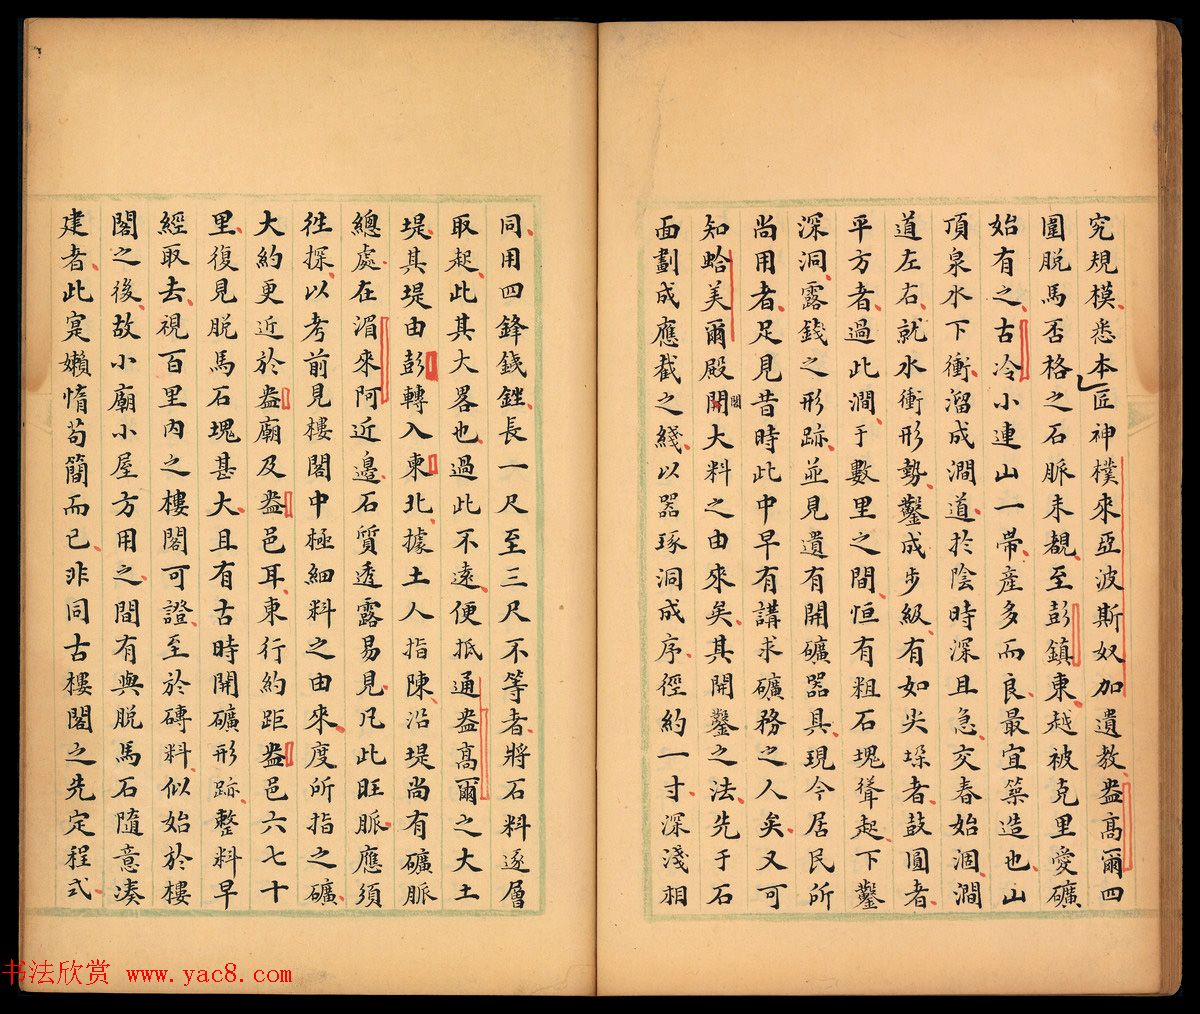 究規模悉本匠神樸來亞波斯奴加遺教盎高爾四
圍脫馬否格之石脈未覩至彭鎮東越被克里愛礦
始有之古冷小連山一帶產多而良最宜築造也山
頂泉水下衝溜成澗道於陰時深且急交春始涸澗
道左右就水衝形勢鑿成步級有如尖垜者鼓圓者
平方者過此澗于數里之間恒有粗石塊聳起下鑿
深洞露錢之形跡並見遺有開礦器具現今居民所
尚用者足見昔時此中早有講求礦務之人矣又可
知蛤美爾殿開大料之由來矣其開鑿之法先于石
閣
面劃成應截之綫以器琢洞成序徑約一寸深淺相
同用四鋒錢銼長一尺至三尺不等者將石料逐層
取起此其大畧也過此不遠便抵通盎高爾之大土
堤其堤由彭轉入東北據土人指陳沿堤尚有礦脈
總處在湄來阿近邊石質透露易見凡此旺脈應須
徃探以考前見樓閣中極細料之由來度所指之礦
大約更近於盎廟及盎邑耳東行約距盎邑六七十
里復見脫馬石塊甚大且有古時開礦形跡整料早
經取去視百里內之樓閣可證至於磚料似始於樓
閣之後故小廟小屋方用之間有與脫馬石隨意湊
建者此寔嬾惰苟簡而已非同古樓閣之先定程式
书法欣赏 www.yac8.com